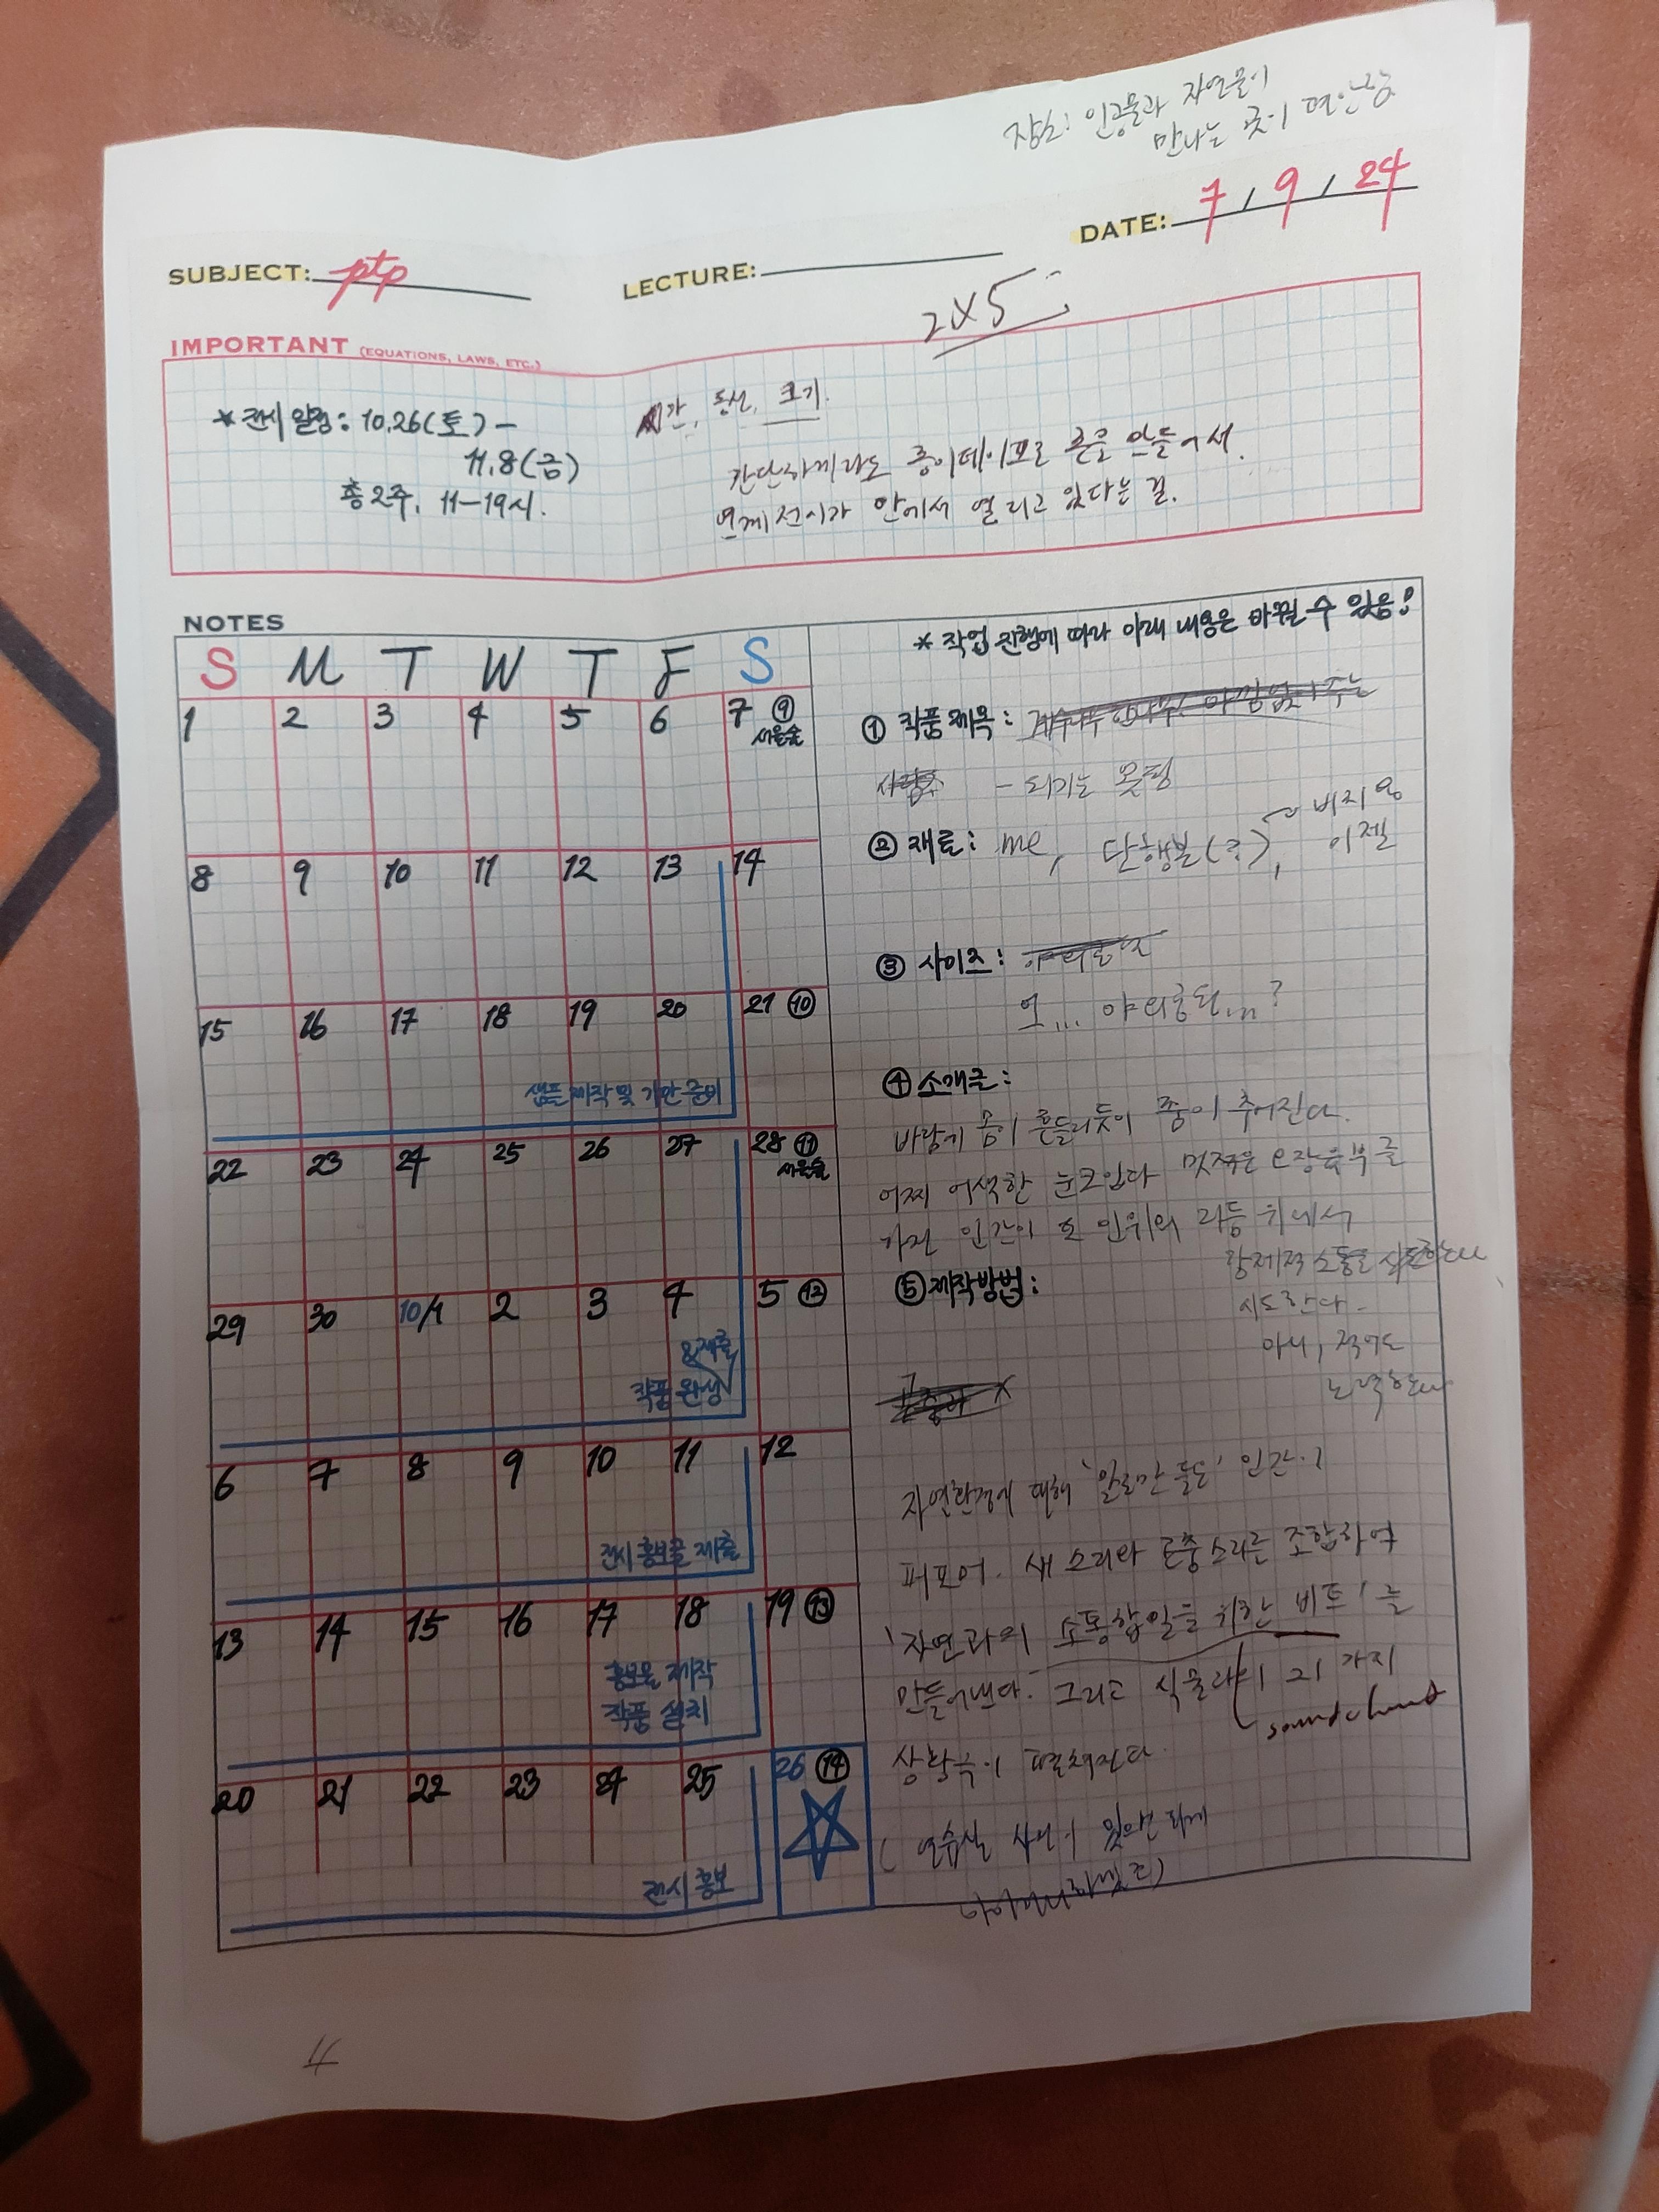 장소: 인공물과 자연물이
만나는 곳이 편안함
SUBJECT: ptp
LECTURE:
DATE: 7 / 9 / 24
2x5
IMPORTANT (EQUATIONS, LAWS, ETC.)
* 전시 일정: 10.26(토) -
11.8(금)
총 2주, 11-19시.
시간, 동선, 크기.
간단하게라도 종이테이프로 존을 만들어서.
전시가 안에서 열리고 있다는 걸.
NOTES
S M T W T F S
1 2 3 4 5 6 7 ⑨
서울숲
8 9 10 11 12 13 14
15 16 17 18 19 20 21 ⑩
샘플 제작 및 기안 준비
22 23 24 25 26 27 28 ⑪
서울숲
29 30 10/1 2 3 4 5 ⑫
&제출
작품 완성
6 7 8 9 10 11 12
전시 홍보글 제출
13 14 15 16 17 18 19 ⑬
홍보물 제작
작품 설치
20 21 22 23 24 25 26 ⑭
전시 홍보
* 작업 진행에 따라 아래 내용은 바뀔 수 있음!
① 작품 제목:
- 되기는 못됨
② 재료: me, 단행본(?),
이젤
③ 사이즈:
어... 야외공연...?
④ 소개글:
바람에 몸이 흔들리듯이 춤이 추어진다.
어찌 어색한 눈코입과
가진 인간이 인위의 리듬 위에서
소통을
시도한다.
아니, 적어도
노력한다
⑤ 제작방법:
자연환경에 대해 '말로만 들은' 인간이
퍼포머. 새 소리와 곤충소리를 조합하여
'자연과의 소통합일을 위한 비트'를
만들어낸다. 그리고 식물과의 21가지
soundcloud
상황극이 펼쳐진다.
(연습실